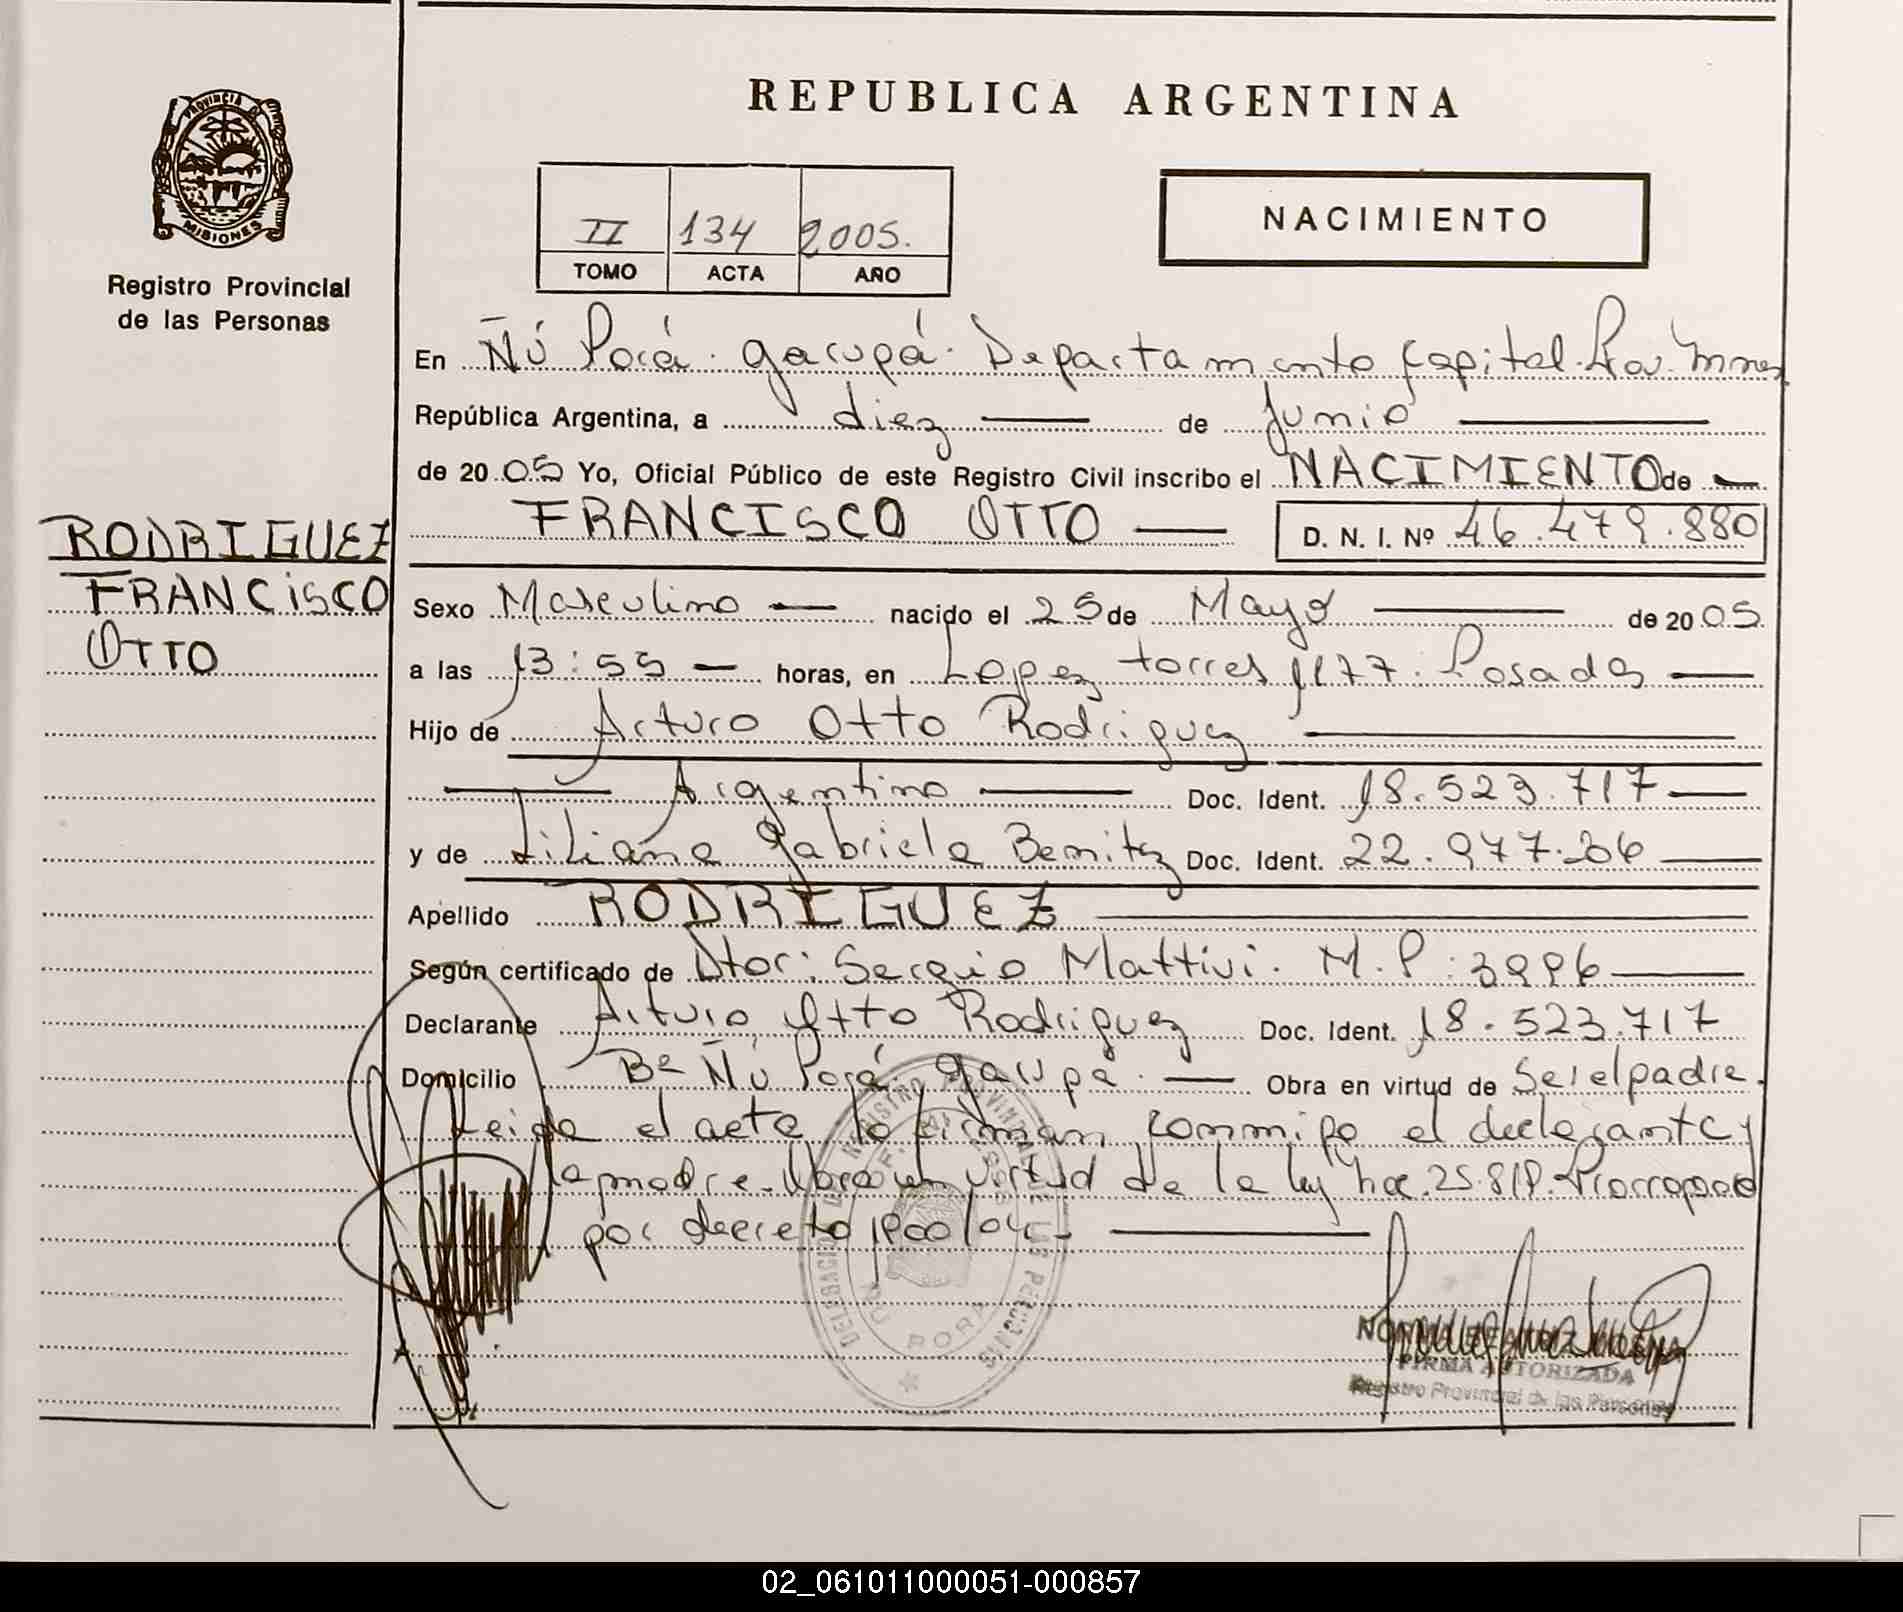 PROVINCIA DE
MISIONES
Registro Provincial
de las Personas
REPUBLICA ARGENTINA
II 134 2005.
TOMO ACTA AÑO
NACIMIENTO
En Ñú Porá. Garupá. Departamento Capital. Prov. Mnes
República Argentina, a diez de Junio
de 20 05 Yo, Oficial Público de este Registro Civil inscribo el NACIMIENTO de
FRANCISCO OTTO D. N. I. Nº 46.479.880
RODRIGUEZ
FRANCISCO
OTTO
Sexo Masculino nacido el 25 de Mayo de 20 05
a las 13:55 horas, en Lopez torres 1177. Posadas
Hijo de Arturo Otto Rodriguez
Argentino Doc. Ident. 18.523.717
y de Liliana Gabriela Benitez Doc. Ident. 22.977.206
Apellido RODRIGUEZ
Según certificado de Dtor: Sergio Mattivi. M.P: 3996
Declarante Arturo Otto Rodriguez Doc. Ident. 18.523.717
Domicilio Bº Ñú Porá. Garupá. Obra en virtud de Ser el padre.
Leida el acta, lo firman conmigo el declarante y
la madre. Obra en virtud de la ley Nac. 25.819. Prorrogado
por decreto 1900/04
DELEGACION REGISTRO PROVINCIAL DE LAS PERSONAS
ÑU PORA
FIRMA AUTORIZADA
Registro Provincial de las Personas
02_061011000051-000857